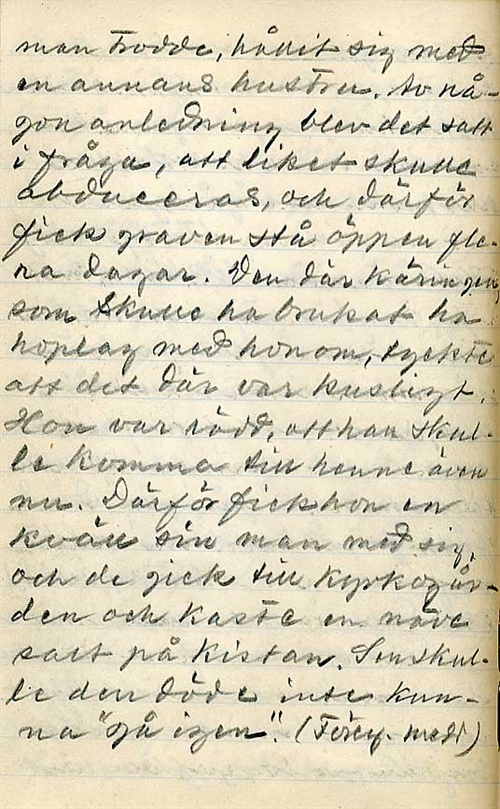 man trodde, hållit sig med
en annans hustru. Av nå-
gon anledning blev det satt
i fråga, att liket skulle
abduceras, och därför
fick graven stå öppen fle-
ra dagar. Den där käringen
som skulle ha brukat ha
hoplag med honom, tyckte
att det där var kusligt.
Hon var rädd, att han skul-
le komma till henne även
nu. Därför fick hon en
kväll sin man med sig,
och de gick till kyrkogår-
den och kaste en näve
salt på kistan. Sen skul-
le den döde inte kun-
na "gå igen". (Förey. med)